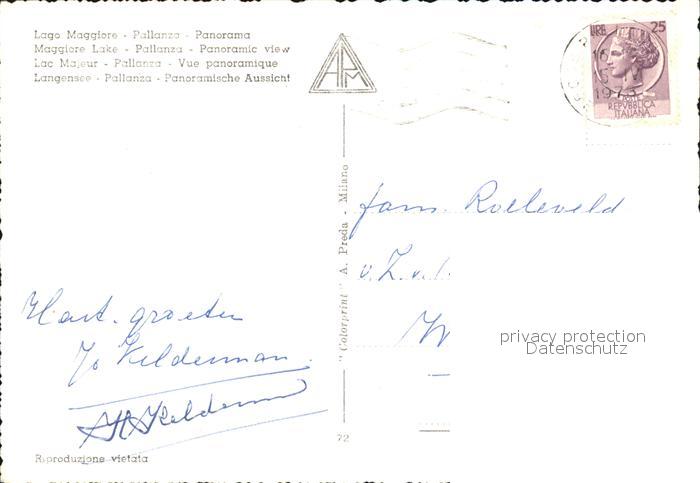 Lago Maggiore - Pallanza - Panorama
Maggiore Lake - Pallanza - Panoramic view
Lac Majeur - Pallanza - Vue panoramique
Langensee - Pallanza - Panoramische Aussicht
APM
LIRE 25
REPVBBLICA
ITALIANA
"Colorprint" A. Preda - Milano
fam. Roeleveld
Hart. groeten
Jo Kelderman
privacy protection
Datenschutz
72
Riproduzione vietata